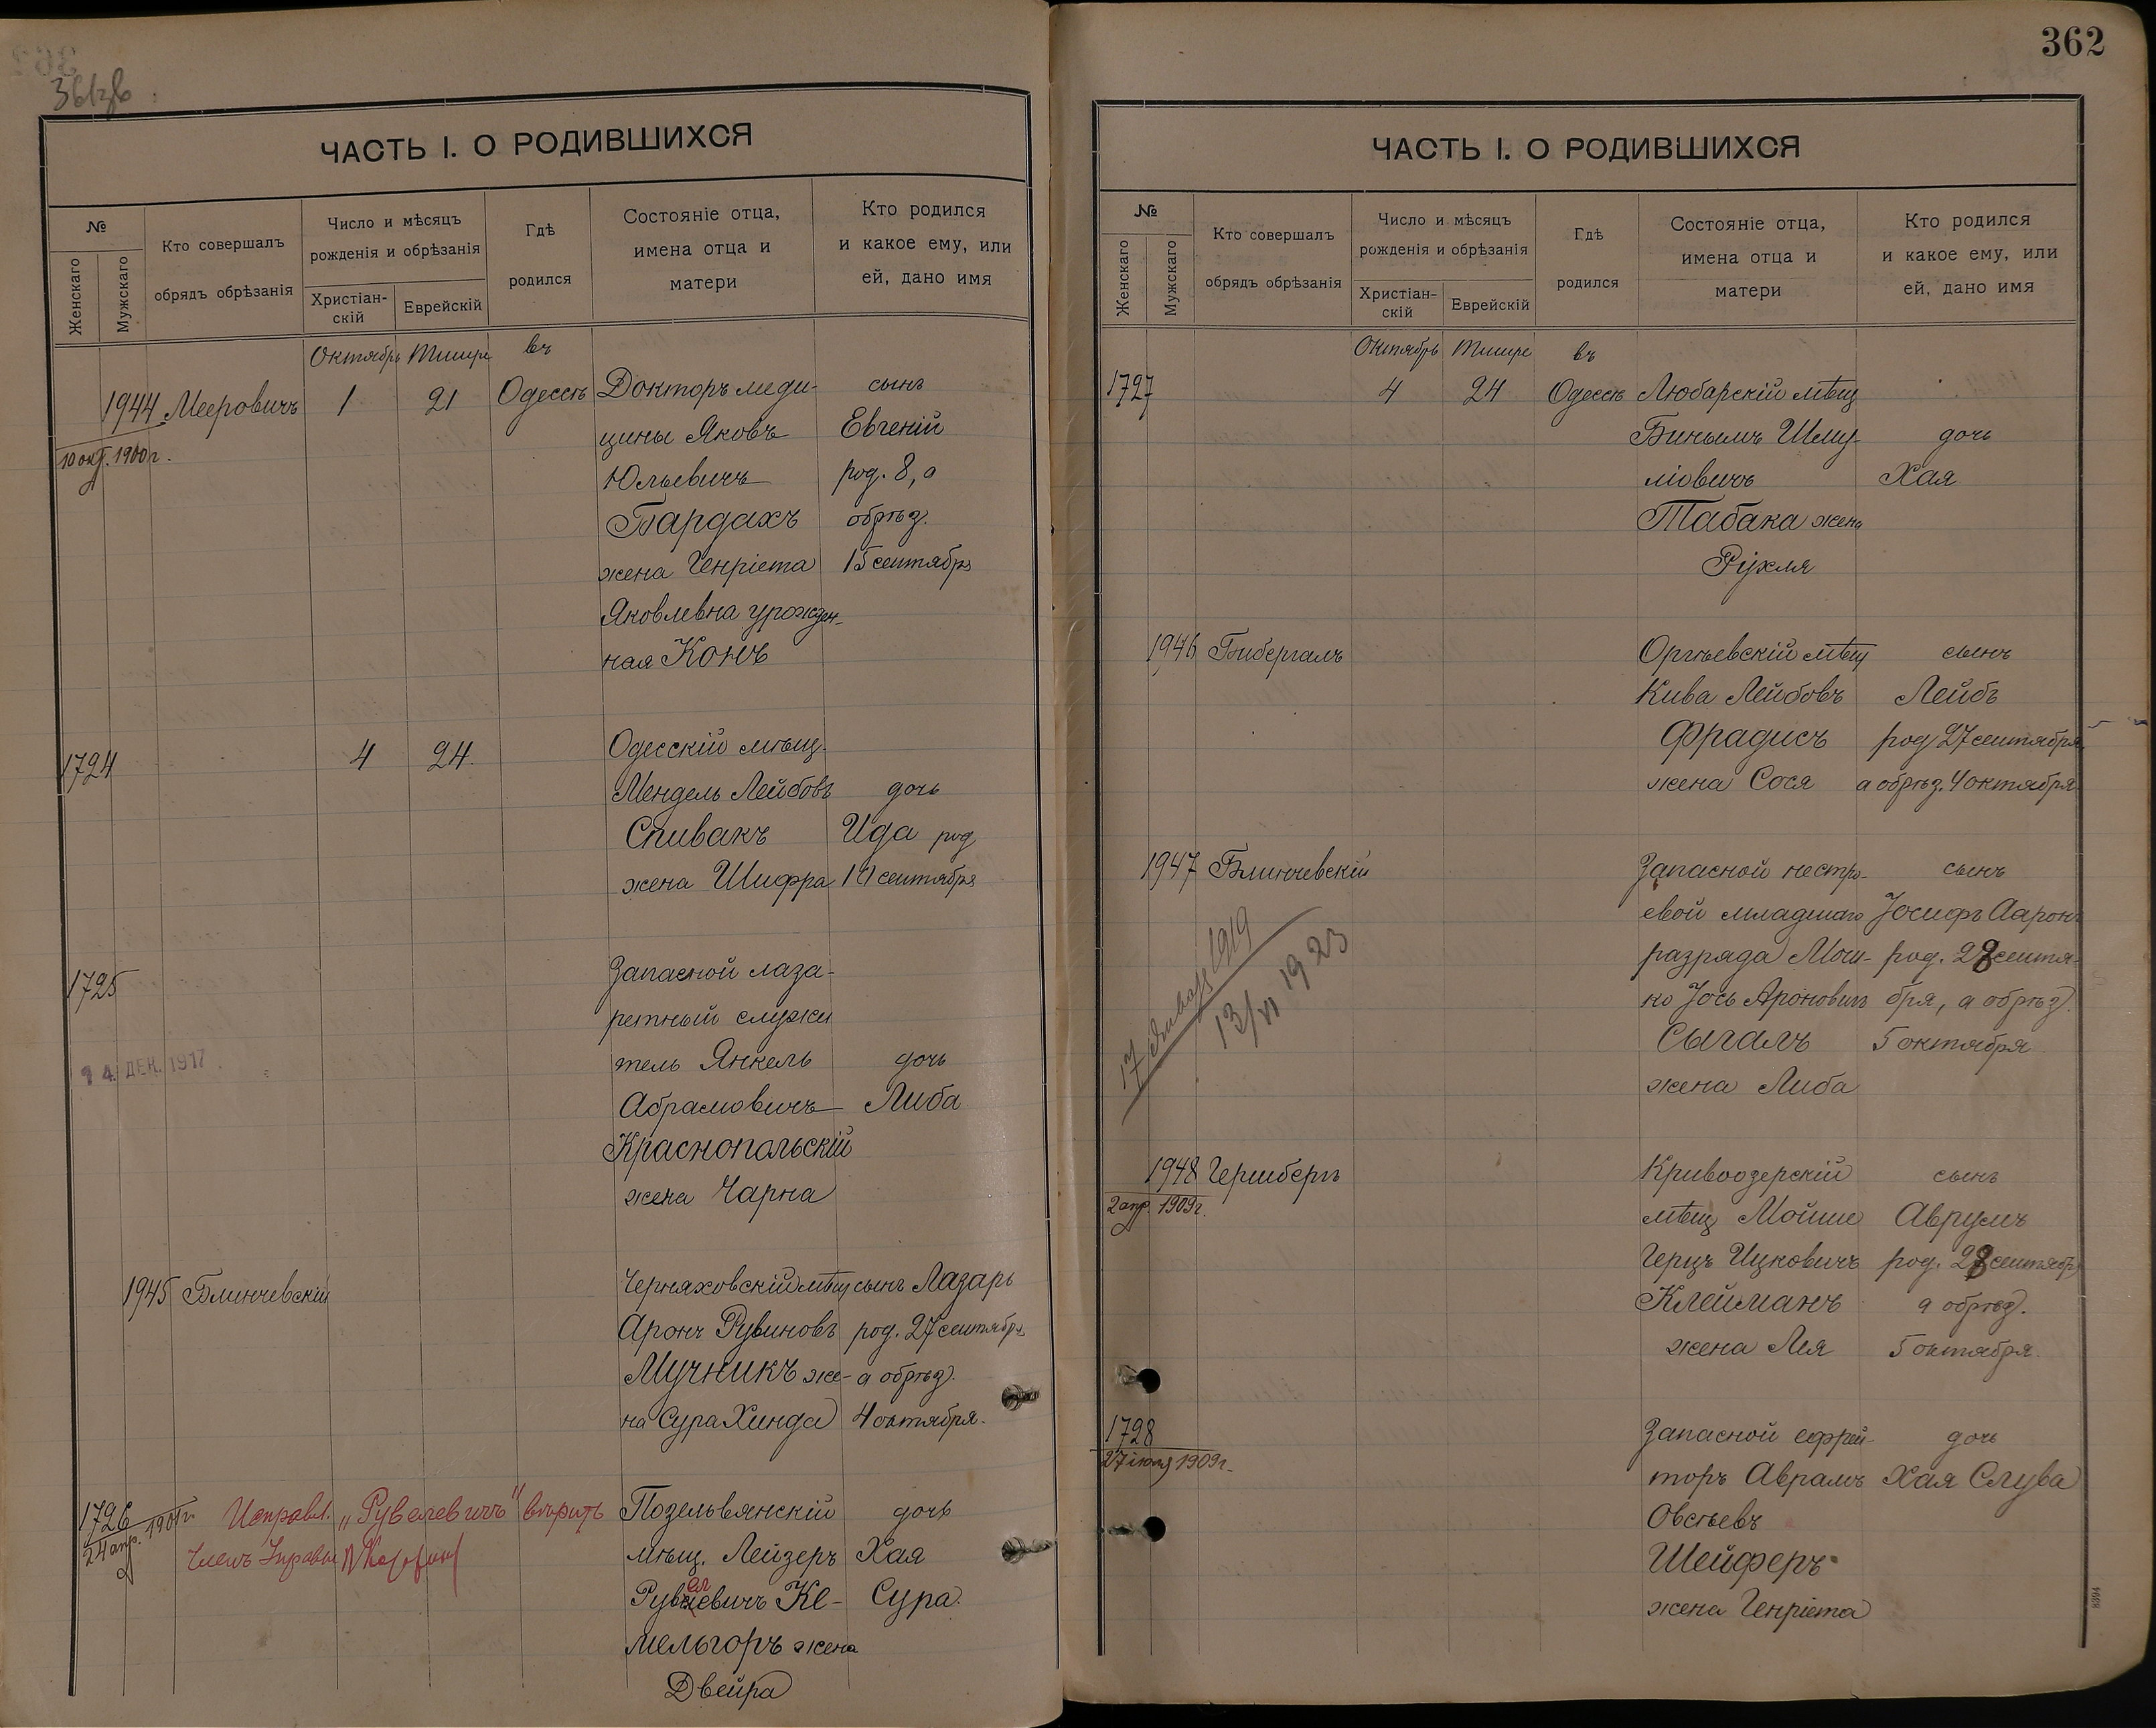 361 об
ЧАСТЬ I. О РОДИВШИХСЯ
№
Женскаго
Мужскаго
Кто совершалъ
обрядъ обрѣзанія
Число и мѣсяцъ
рожденія и обрѣзанія
Христіан-
скій
Еврейскій
Гдѣ
родился
Состояніе отца,
имена отца и
матери
Кто родился
и какое ему, или
ей, дано имя
Октябрь Тишре въ
1944 Мееровичъ 1 21 Одессѣ Докторъ меди- сынъ
10 окт. 1900 г. цины Яковъ Евгеній
Юльевичъ род. 8, а
Бардахъ обрѣз.
жена Генріета 15 сентября
Яковлевна урожден-
ная Конъ
1724 4 24 Одесскій мѣщ.
Мендель Лейбовъ дочь
Спивакъ Ида род
жена Шифра 14 сентября
1725 Запасной лаза-
ретный служи
14 ДЕК. 1917 тель Янкель дочь
Абрамовичъ Либа
Краснопольскій
жена Чарна
1945 Блинчевскій Черняховскій мѣщ сынъ Лазарь
Аронъ Рувиновъ род. 27 сентября
Мучникъ же- а обрѣз.
на Сура Хинда 4 октября.
1726 24 апр. 1901 г. Исправл. „Рувелевичъ" вѣрить Позельвянскій дочь
Членъ Управы мѣщ. Лейзеръ Хая
Рувелевичъ Ке- Сура.
мельгоръ жена
Двейра
362
ЧАСТЬ I. О РОДИВШИХСЯ
№
Женскаго
Мужскаго
Кто совершалъ
обрядъ обрѣзанія
Число и мѣсяцъ
рожденія и обрѣзанія
Христіан-
скій
Еврейскій
Гдѣ
родился
Состояніе отца,
имена отца и
матери
Кто родился
и какое ему, или
ей, дано имя
Октябрь Тишре въ
1727 4 24 Одессѣ Любарскій мѣщ
Бинымъ Шлу- дочь
міовичъ Хая
Табака жена
Рухля
1946 Бибергалъ Оргѣевскій мѣщ сынъ
Кива Лейбовъ Лейбъ
Фрадисъ род 27 сентября
жена Сося а обрѣз. 4 октября
1947 Блинчевскій Запасной нестро- сынъ
евой младшаго Іосифъ Ааронъ
17 Января 1919 разряда Мош- род. 28 сентя-
13/VI 1923 ко Іось Ароновичъ бря, а обрѣз
Сыгалъ 5 октября
жена Либа
1948 Гершбергъ Кривоозерскій сынъ
2 апр. 1909 г. мѣщ Мойше Аврумъ
Герцъ Ицковичъ род. 28 сентября
Клейманъ а обрѣз.
жена Лея 5 октября.
1728 Запасной ефрей- дочь
27 1909 г. торъ Аврамъ Хая Слува
Овсѣевъ
Шейферъ
жена Генріета